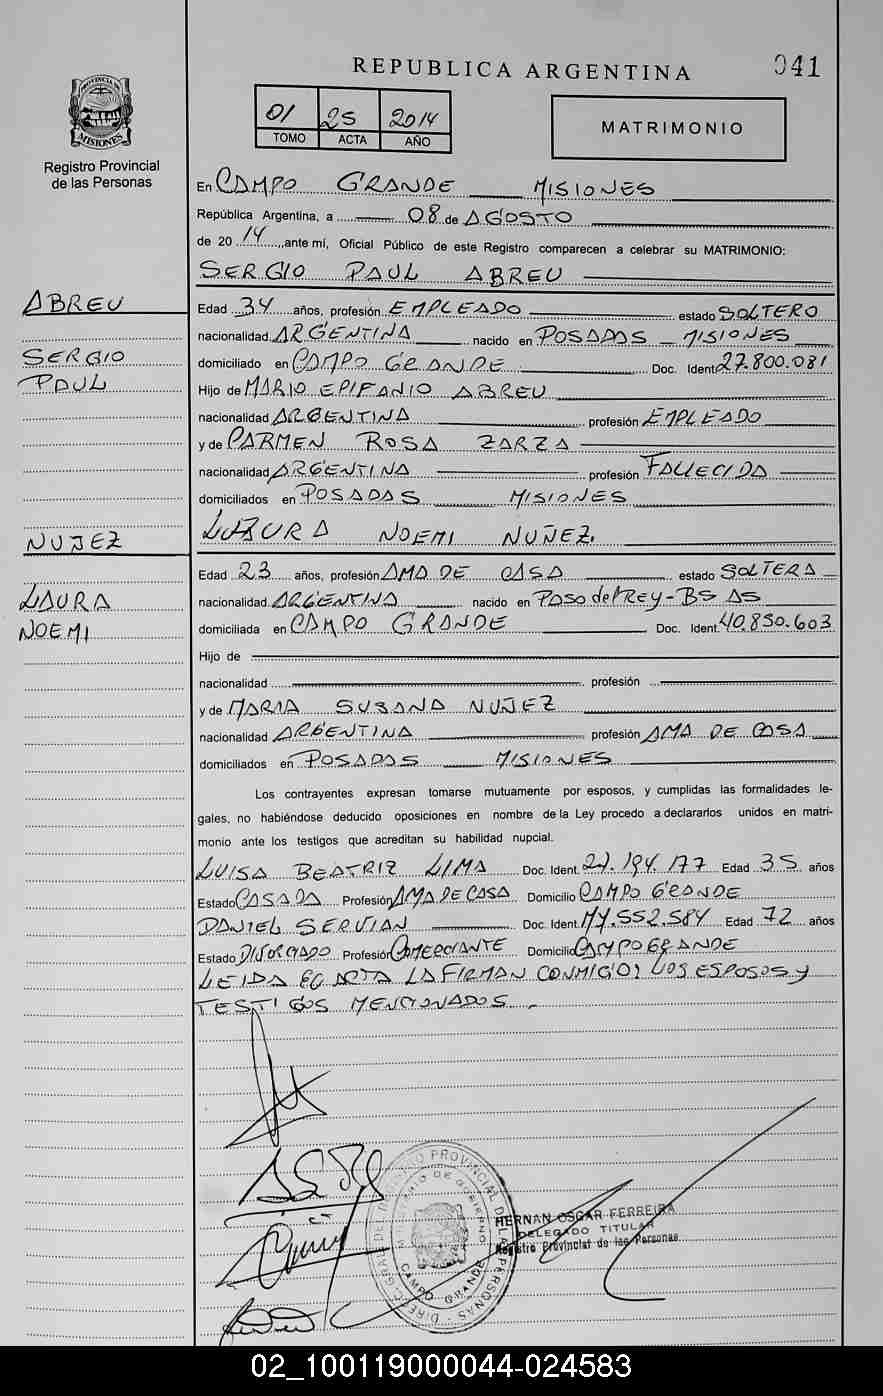 REPUBLICA ARGENTINA
041
PROVINCIA DE
MISIONES
Registro Provincial
de las Personas
01 25 2014
TOMO ACTA AÑO
MATRIMONIO
En CAMPO GRANDE MISIONES
República Argentina, a 08 de AGOSTO
de 20 14, ante mí, Oficial Público de este Registro comparecen a celebrar su MATRIMONIO:
SERGIO PAUL ABREU
ABREU
SERGIO
PAUL
Edad 34 años, profesión EMPLEADO estado SOLTERO
nacionalidad ARGENTINA nacido en POSADAS MISIONES
domiciliado en CAMPO GRANDE Doc. Ident. 27.800.081
Hijo de MARIO EPIFANIO ABREU
nacionalidad ARGENTINA profesión EMPLEADO
y de CARMEN ROSA ZARZA
nacionalidad ARGENTINA profesión FALLECIDA
domiciliados en POSADAS MISIONES
LAURA NOEMI NUÑEZ.
NUÑEZ
LAURA
NOEMI
Edad 23 años, profesión AMA DE CASA estado SOLTERA
nacionalidad ARGENTINA nacido en PASO del REY - BS AS
domiciliada en CAMPO GRANDE Doc. Ident. 40.830.603
Hijo de
nacionalidad profesión
y de MARIA SUSANA NUÑEZ
nacionalidad ARGENTINA profesión AMA DE CASA
domiciliados en POSADAS MISIONES
Los contrayentes expresan tomarse mutuamente por esposos, y cumplidas las formalidades le-
gales, no habiéndose deducido oposiciones en nombre de la Ley procedo a declararlos unidos en matri-
monio ante los testigos que acreditan su habilidad nupcial.
LUISA BEATRIZ LIMA Doc. Ident. 27.194.177 Edad 35 años
Estado CASADA Profesión AMA DE CASA Domicilio CAMPO GRANDE
DANIEL SERVIAN Doc. Ident. M7.552.584 Edad 72 años
Estado DIVORCIADO Profesión COMERCIANTE Domicilio CAMPO GRANDE
LEIDA EC ACTA LA FIRMAN CONMIGO; LOS ESPOSOS y
TESTIGOS MENCIONADOS.
DIREC. GRAL DEL REGISTRO PROVINCIAL DE LAS PERSONAS
MINISTERIO DE GOBIERNO
CAMPO GRANDE
HERNAN OSCAR FERREIRA
DELEGADO TITULAR
Registro Provincial de las Personas
02_100119000044-024583